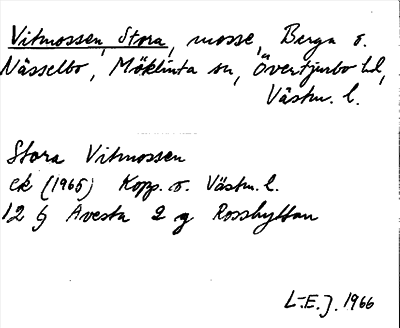 Vitmossen, Stora, mosse, Berga o.
Nässelbo, Möklinta sn, Övertjurbo hd,
Västm. l.
Stora Vitmossen
ek (1965) Kopp. o. Västm. l.
12 G Avesta 2 g Rosshyttan
L-E.J. 1966